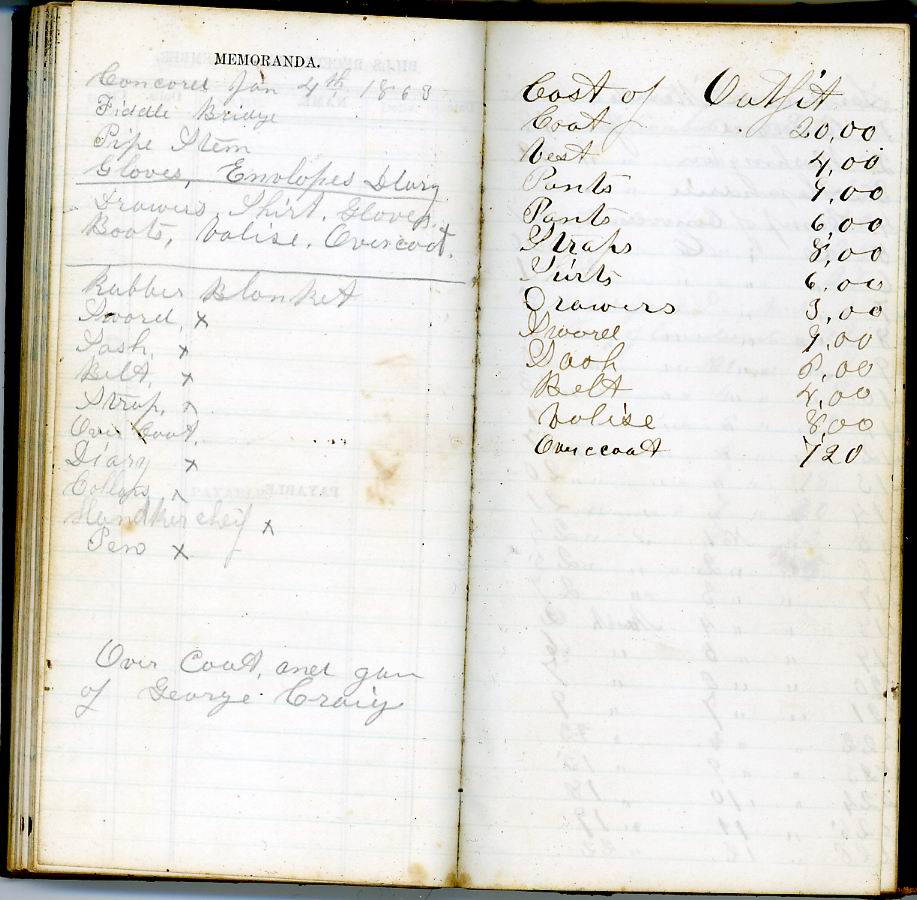 MEMORANDA.
Concord Jan 4th 1863
Fiddle Bridge
Pipe Stem
Gloves, Envolopes Diary
Drawers Shirt. Gloves.
Boots, Valise. Overcoat.
Rubber Blanket
Sword, x
Sash, x
Belt, x
Strap, x
Over Coat.
Diary x
Collars, x
Handkercheif x
Pen x
Over Coat, and gun
of George Craig
Cost of Outfit
Coat 20,00
Vest 4,00
Pants
Pants 6,00
Straps 8,00
Surts 6,00
Drawers 3,00
Sword
Sash
Belt
Valise 8,00
Overcoat